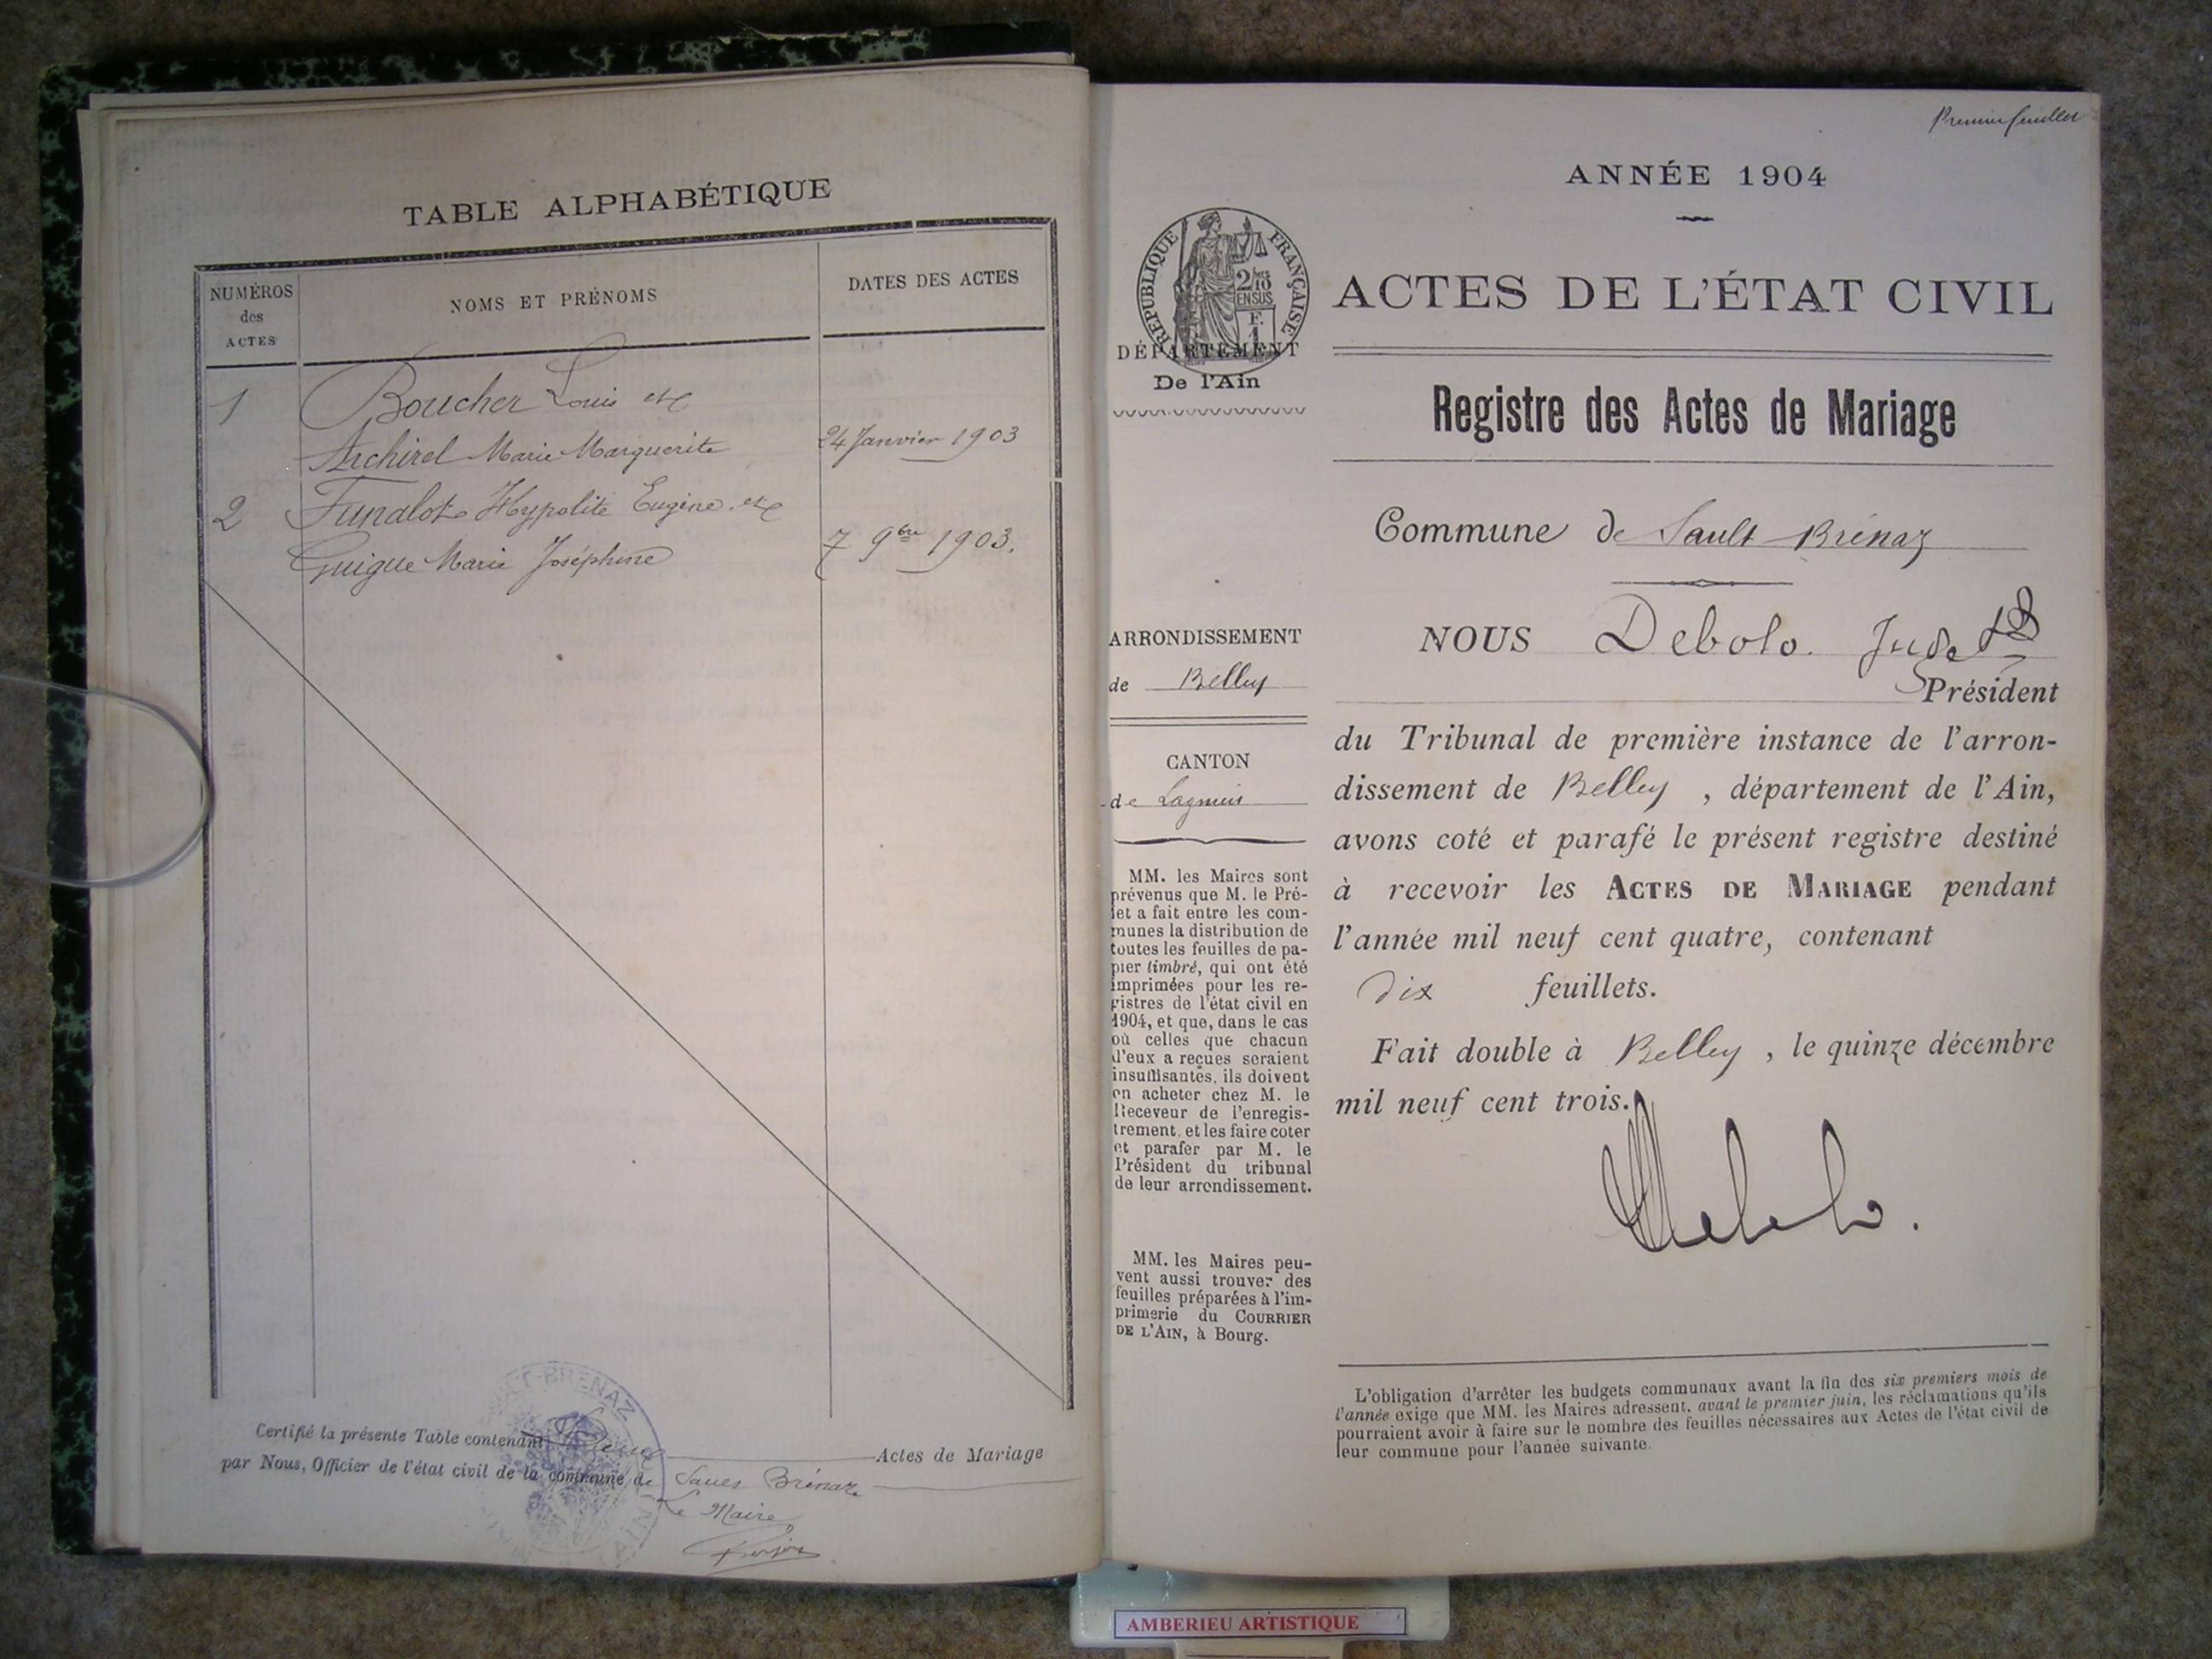 TABLE ALPHABÉTIQUE
NUMÉROS
des
ACTES
NOMS ET PRÉNOMS
DATES DES ACTES
1 Boucher Louis et
Archirel Marie Marguerite 24 Janvier 1903
2 Funalot Hypolite Eugène et
Guigue Marie Joséphine 7 9bre 1903.
Certifié la présente Table contenant Deux Actes de Mariage
par Nous, Officier de l'état civil de la commune de Sault Brénaz
Le Maire
Premier feuillet
ANNÉE 1904
RÉPUBLIQUE FRANÇAISE
2/10
EN SUS
DÉPARTEMENT
De l'Ain
ACTES DE L'ÉTAT CIVIL
Registre des Actes de Mariage
Commune de Sault Brénaz
ARRONDISSEMENT
de Belley
CANTON
de Lagnieu
MM. les Maires sont
prévenus que M. le Pré-
fet a fait entre les com-
munes la distribution de
toutes les feuilles de pa-
pier timbré, qui ont été
imprimées pour les re-
gistres de l'état civil en
1904, et que, dans le cas
où celles que chacun
d'eux a reçues seraient
insuffisantes, ils doivent
en acheter chez M. le
Receveur de l'enregis-
trement, et les faire coter
et parafer par M. le
Président du tribunal
de leur arrondissement.
MM. les Maires peu-
vent aussi trouver des
feuilles préparées à l'im-
primerie du COURRIER
DE L'AIN, à Bourg.
NOUS Debolo. Juge
Président
du Tribunal de première instance de l'arron-
dissement de Belley, département de l'Ain,
avons coté et parafé le présent registre destiné
à recevoir les ACTES DE MARIAGE pendant
l'année mil neuf cent quatre, contenant
dix feuillets.
Fait double à Belley, le quinze décembre
mil neuf cent trois.
Debolo.
L'obligation d'arrêter les budgets communaux avant la fin des six premiers mois de
l'année exige que MM. les Maires adressent, avant le premier juin, les réclamations qu'ils
pourraient avoir à faire sur le nombre des feuilles nécessaires aux Actes de l'état civil de
leur commune pour l'année suivante.
AMBERIEU ARTISTIQUE